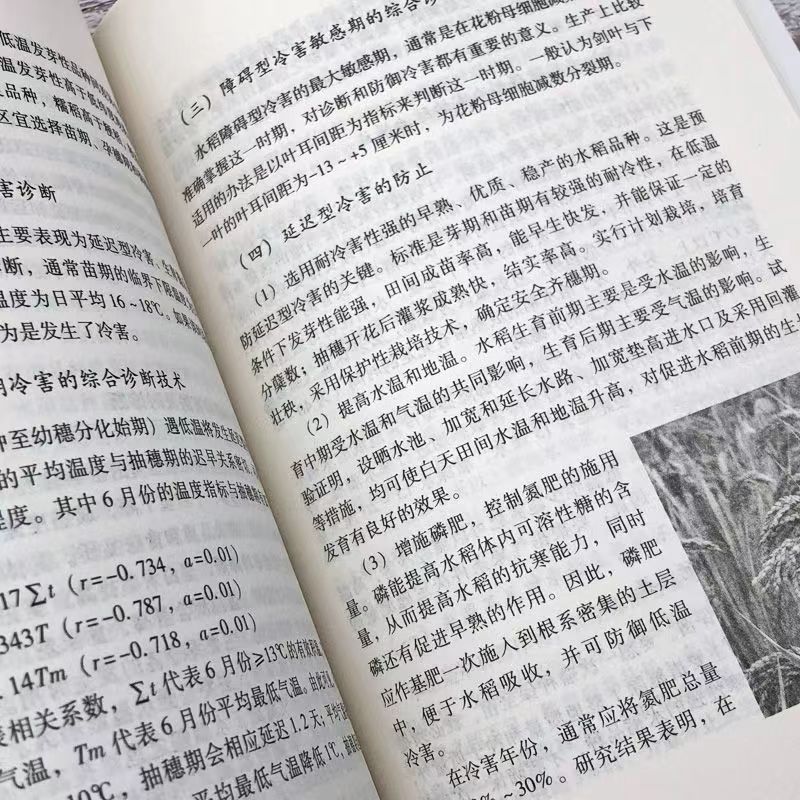 低温发芽性品种
温发芽性高于低
品种，糯稻高于
区宜选择苗期、孕
害诊断
主要表现为延迟型冷害
断，通常苗期的临界下限温
温度为日平均16~18℃
为是发生了冷害。
期冷害的综合诊断技术
种至幼穗分化始期）遇低温将发生延
的平均温度与抽穗期的迟早关系密
程度。其中6月份的温度指标与抽穗
17∑t（r=-0.734，a=0.01）
343T（r=-0.787，a=0.01）
.14Tm（r=-0.718，a=0.01）
表相关系数，∑t代表6月份≥13℃的有效积温
气温，Tm代表6月份平均最低气温。由此可见
10℃，抽穗期会相应延迟1.2天；平均
平均最低气温降低1℃，抽穗
（三）障碍型冷害敏感期的综合诊
水稻障碍型冷害的最大敏感期，通常是在花粉母细胞减数
准确掌握这一时期，对诊断和防御冷害都有重要的意义。生产上比较
适用的办法是以叶耳间距为指标来判断这一时期。一般认为剑叶与下
一叶的叶耳间距为-13～+5厘米时，为花粉母细胞减数分裂期。
（四）延迟型冷害的防止
（1）选用耐冷害性强的早熟、优质、稳产的水稻品种。这是预
防延迟型冷害的关键。标准是芽期和苗期有较强的耐冷性，在低温
条件下发芽性能强，田间成苗率高，能早生快发，并能保证一定的
分蘖数；抽穗开花后灌浆成熟快，结实率高。实行计划栽培，培育
壮秧，采用保护性栽培技术，确定安全齐穗期。
（2）提高水温和地温。水稻生育前期主要是受水温的影响，生
育中期受水温和气温的共同影响，生育后期主要受气温的影响。试
验证明，设晒水池、加宽和延长水路、加宽垫高进水口及采用回灌
等措施，均可使白天田间水温和地温升高，对促进水稻前期的生长
发育有良好的效果。
（3）增施磷肥，控制氮肥的施用
量。磷能提高水稻体内可溶性糖的含
量，从而提高水稻的抗寒能力，同时
磷还有促进早熟的作用。因此，磷肥
应作基肥一次施入到根系密集的土层
中，便于水稻吸收，并可防御低温
冷害。
在冷害年份，通常应将氮肥总量
%～30%。研究结果表明，在